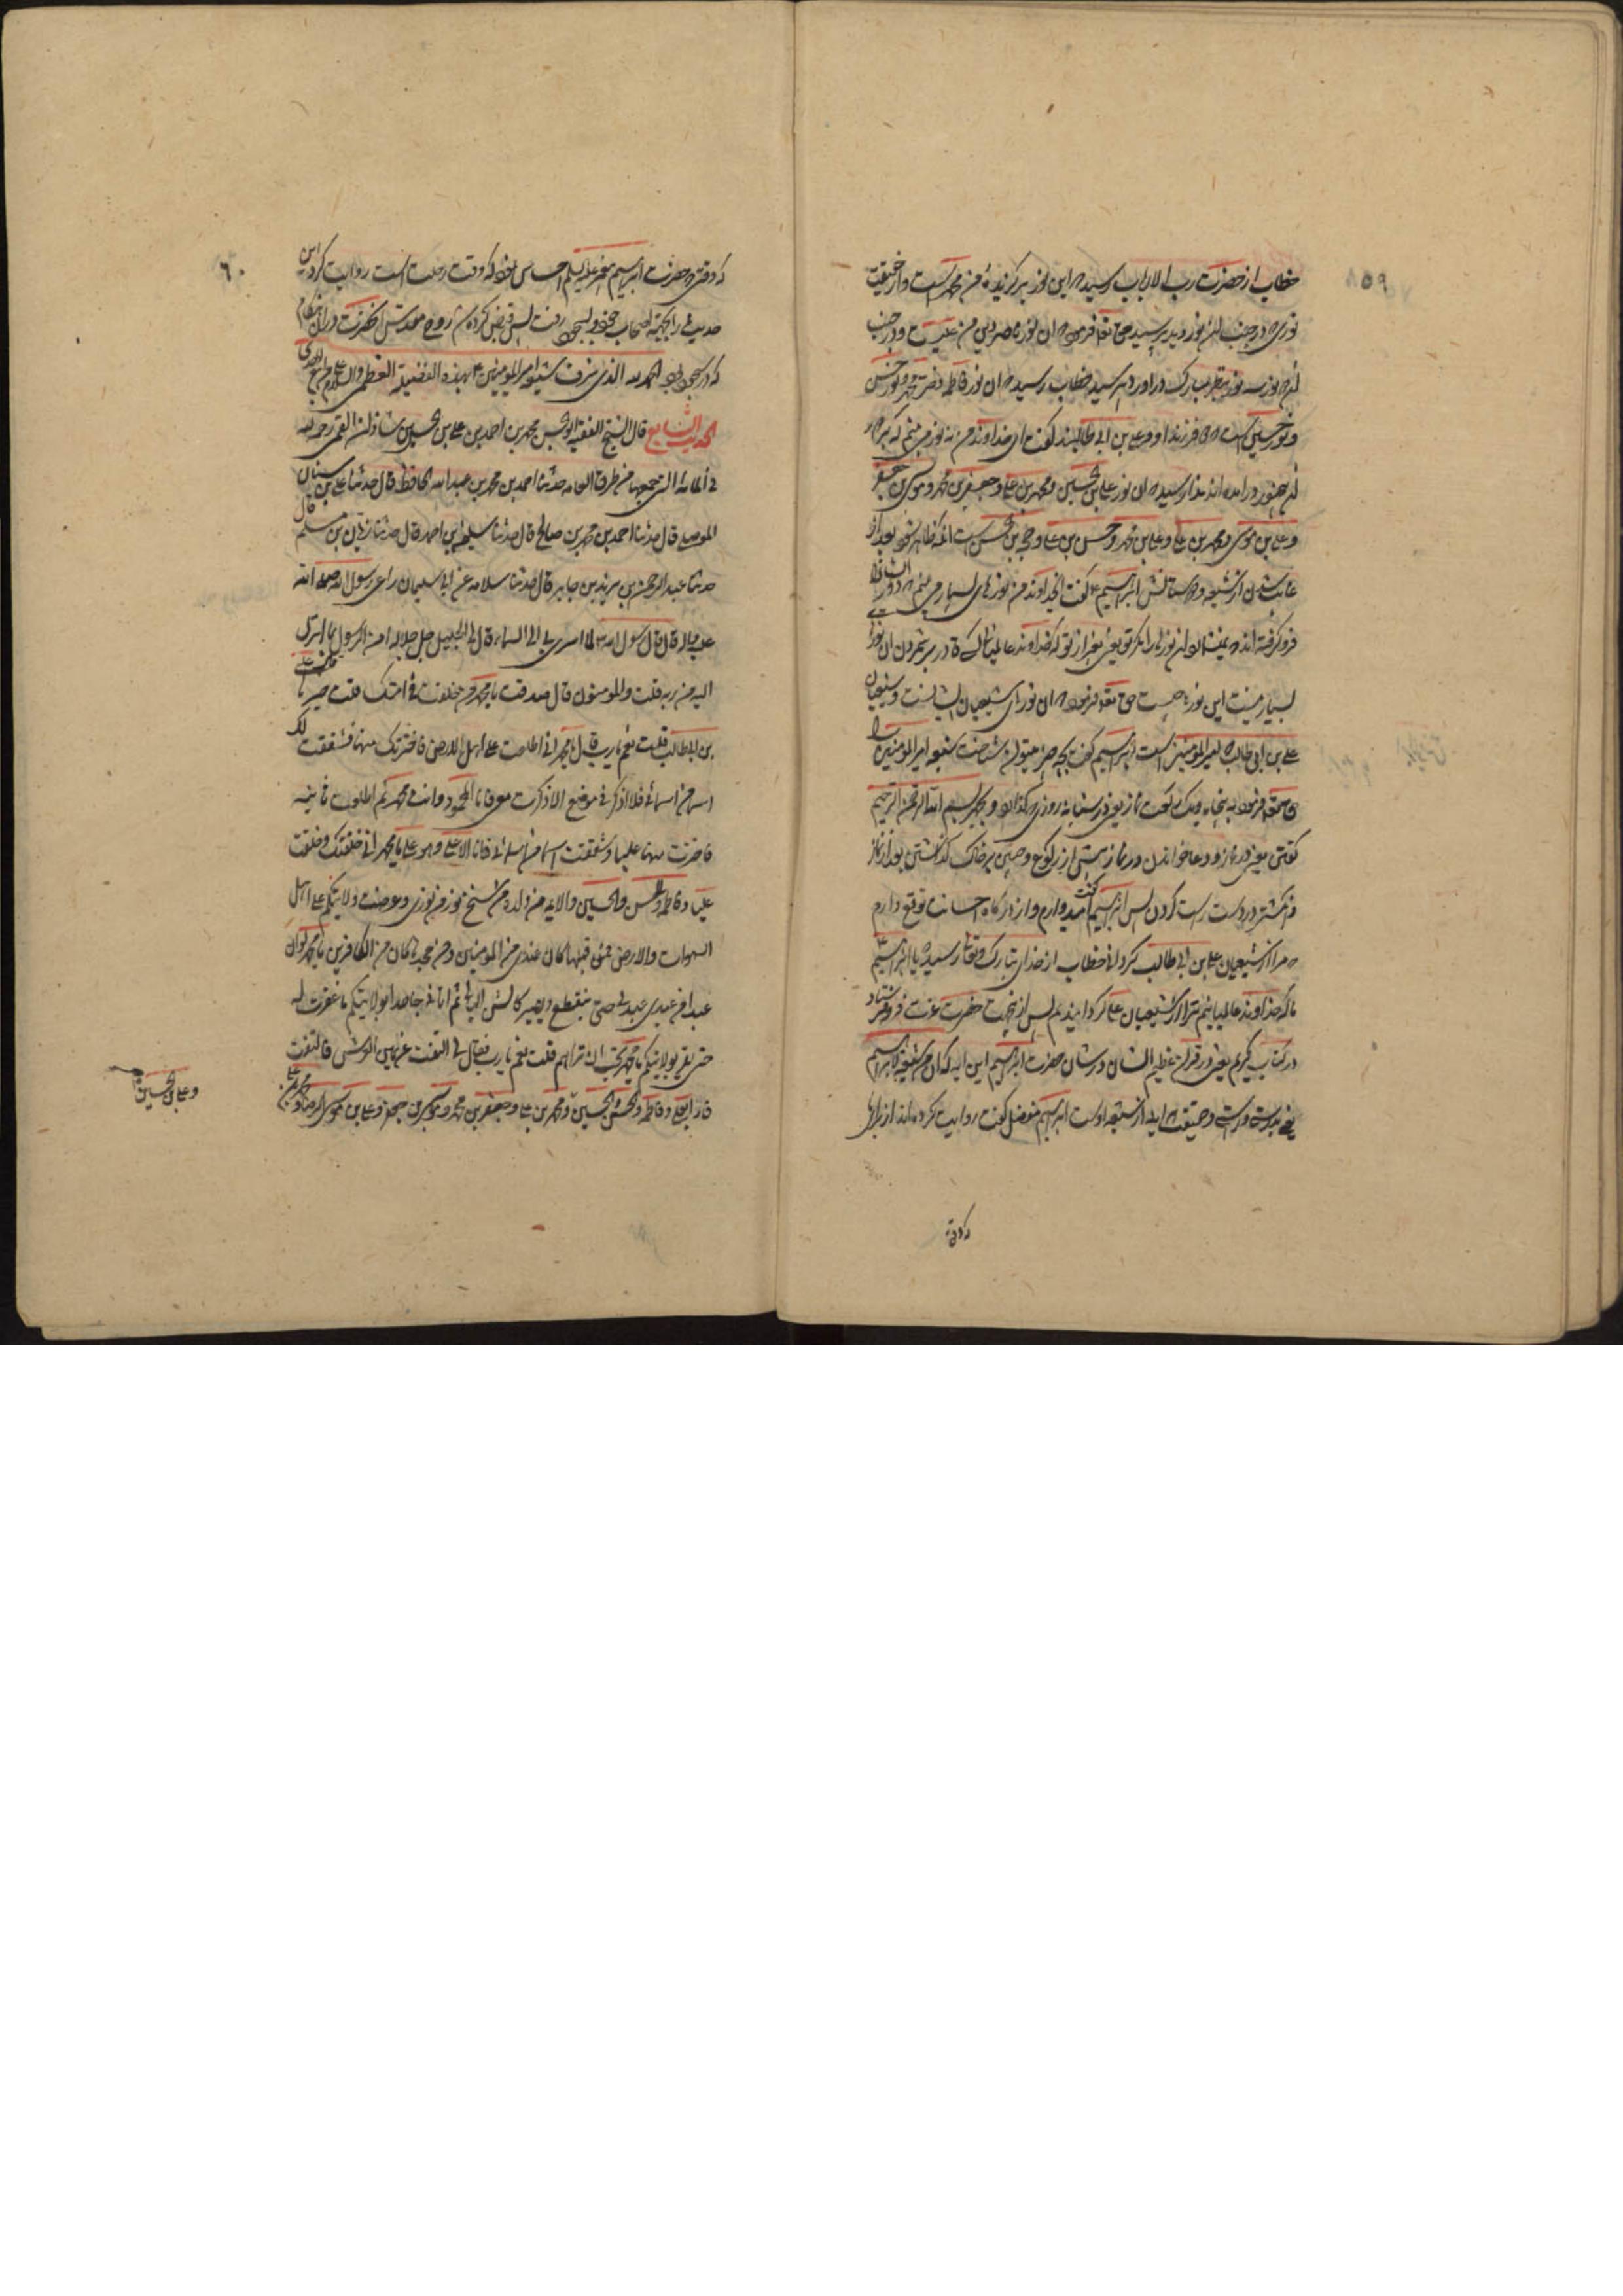 ۵۹
خطاب از حضرت رب الارباب رسید که این نور برگزیدهٔ من محمد است و از حقیقت
نوری که در جنب این نور دید پرسید حق تعالی فرمود که آن نور ناصر دین من علیست و در جنب
این دو نور سه نور بنظر مبارک در آورد پرسید خطاب رسید که آن نور فاطمه دختر محمد و نور حسن
و نور حسین است که فرزندان او و علی بن ابی طالبند گفت ای خداوند من نه نور می بینم که
این پنج نور در آمده اند ندا رسید که آن نور علی بن حسین و محمد بن علی و جعفر بن محمد و موسی بن جعفر
و علی بن موسی و محمد بن علی و علی بن محمد و حسن بن علی و حجة بن حسن است آنکه ظاهر شود بعد از
غایب شدن از شیعه و دوستانش ابراهیم گفت ای خداوند من نورهای بسیار می بینم که دور ایشان را
فرو گرفته اند که نمیداند آن نورها را مگر تو یعنی بغیر از تو که خداوند عالمیانی کسی قادر بر شمردن آن نورهای
بسیار نیست این نورها چیست حق تعالی فرمود که آن نورهای شیعیان ایشانست و شیعیان
علی بن ابی طالب که امیر المؤمنین است ابراهیم گفت بچه چیز میتوان شناخت شیعه امیر المؤمنین را
حق تعالی فرمود به پنجاه و یک رکعت نماز یعنی در شبانه روزی گذاردن و بجهر بسم الله الرحمن الرحیم
گفتن یعنی در نماز و دعا خواندن در نماز پیش از رکوع و جبین بر خاک گذاشتن بعد از نماز
و انگشتر در دست راست کردن پس ابراهیم گفت امیدوارم و از درگاه احسانت توقع دارم
که مرا از شیعیان علی بن ابی طالب گردانی خطاب از خدای تبارک و تعالی رسید که یا ابراهیم
ما که خداوند عالمیانیم ترا از شیعیان علی گردانیدیم پس از این جهت حضرت عزت فرو فرستاد
در کتاب کریم یعنی در قرآن عظیم الشان در شان حضرت ابراهیم این آیه که ان من شیعته لابراهیم
یعنی بدرستی و راستی و حقیقت که از شیعه اوست ابراهیم مفضل گفت روایت کرده اند از برای ما
که وقتی
۶۰
که وقتی که حضرت ابراهیم پیغمبر علیه السلم احساس نمود که وقت رحلت است روایت کرد این
حدیث را بجهت اصحاب خود و بسجود رفت پس قبض کرده شد روح مقدس آن حضرت در آن هنگام
که در سجود بود الحمد لله الذی شرف شیعة امیر المؤمنین بهذه الفضیلة العظمی والسلام علی من اتبع الهدی
الحدیث السابع قال الشیخ الفقیه ابو الحسن محمد بن احمد بن علی بن حسین بن شاذان القمی رحمه الله
فی المائة التی جمعها من طرق العامه حدثنا احمد بن محمد بن عبد الله الحافظ قال حدثنا علی بن سنان
الموصلی قال حدثنا احمد بن محمد بن صالح قال حدثنا سلیمان بن احمد قال حدثنا زیاد بن مسلم قال
حدثنا عبد الرحمن بن یزید بن جابر قال حدثنا سلامه عن ابی سلیمان راعی رسول الله صلی الله
علیه و آله قال قال رسول الله لما اسری بی الی السماء قال لی الجلیل جل جلاله امن الرسول بما انزل
الیه من ربه قلت والمؤمنون قال صدقت یا محمد من خلفت فی امتک قلت خیرها قال علی
بن ابی طالب قلت نعم یا رب قال یا محمد انی اطلعت علی اهل الارض فاخترتک منها فشققت لک
اسما من اسمائی فلا اذکر فی موضع الا ذکرت معی فانا المحمود وانت محمد ثم اطلعت ثانیه
فاخترت منها علیا وشققت له اسما من اسمائی فانا الاعلی وهو علی یا محمد انی خلقتک وخلقت
علیا وفاطمه والحسن والحسین والائمه من ولده من سنخ نور من نوری وعرضت ولایتکم علی اهل
السموات والارض فمن قبلها کان عندی من المؤمنین ومن جحدها کان من الکافرین یا محمد لو ان
عبدا من عبیدی عبدنی حتی ینقطع ویصیر کالشن البالی ثم اتانی جاحدا بولایتکم ما غفرت له
حتی یقر بولایتکم یا محمد تحب ان تراهم قلت نعم یا رب فقال لی التفت عن یمین العرش فالتفت
فاذا بعلی وفاطمه والحسن والحسین ومحمد بن علی وجعفر بن محمد وموسی بن جعفر وعلی بن موسی الرضا ومحمد بن علی
وعلی بن الحسین